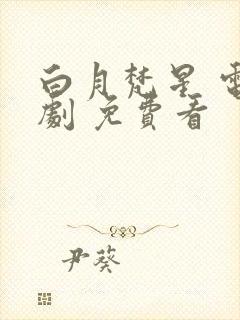 白月梵星 電
劇 免費看
尹葵